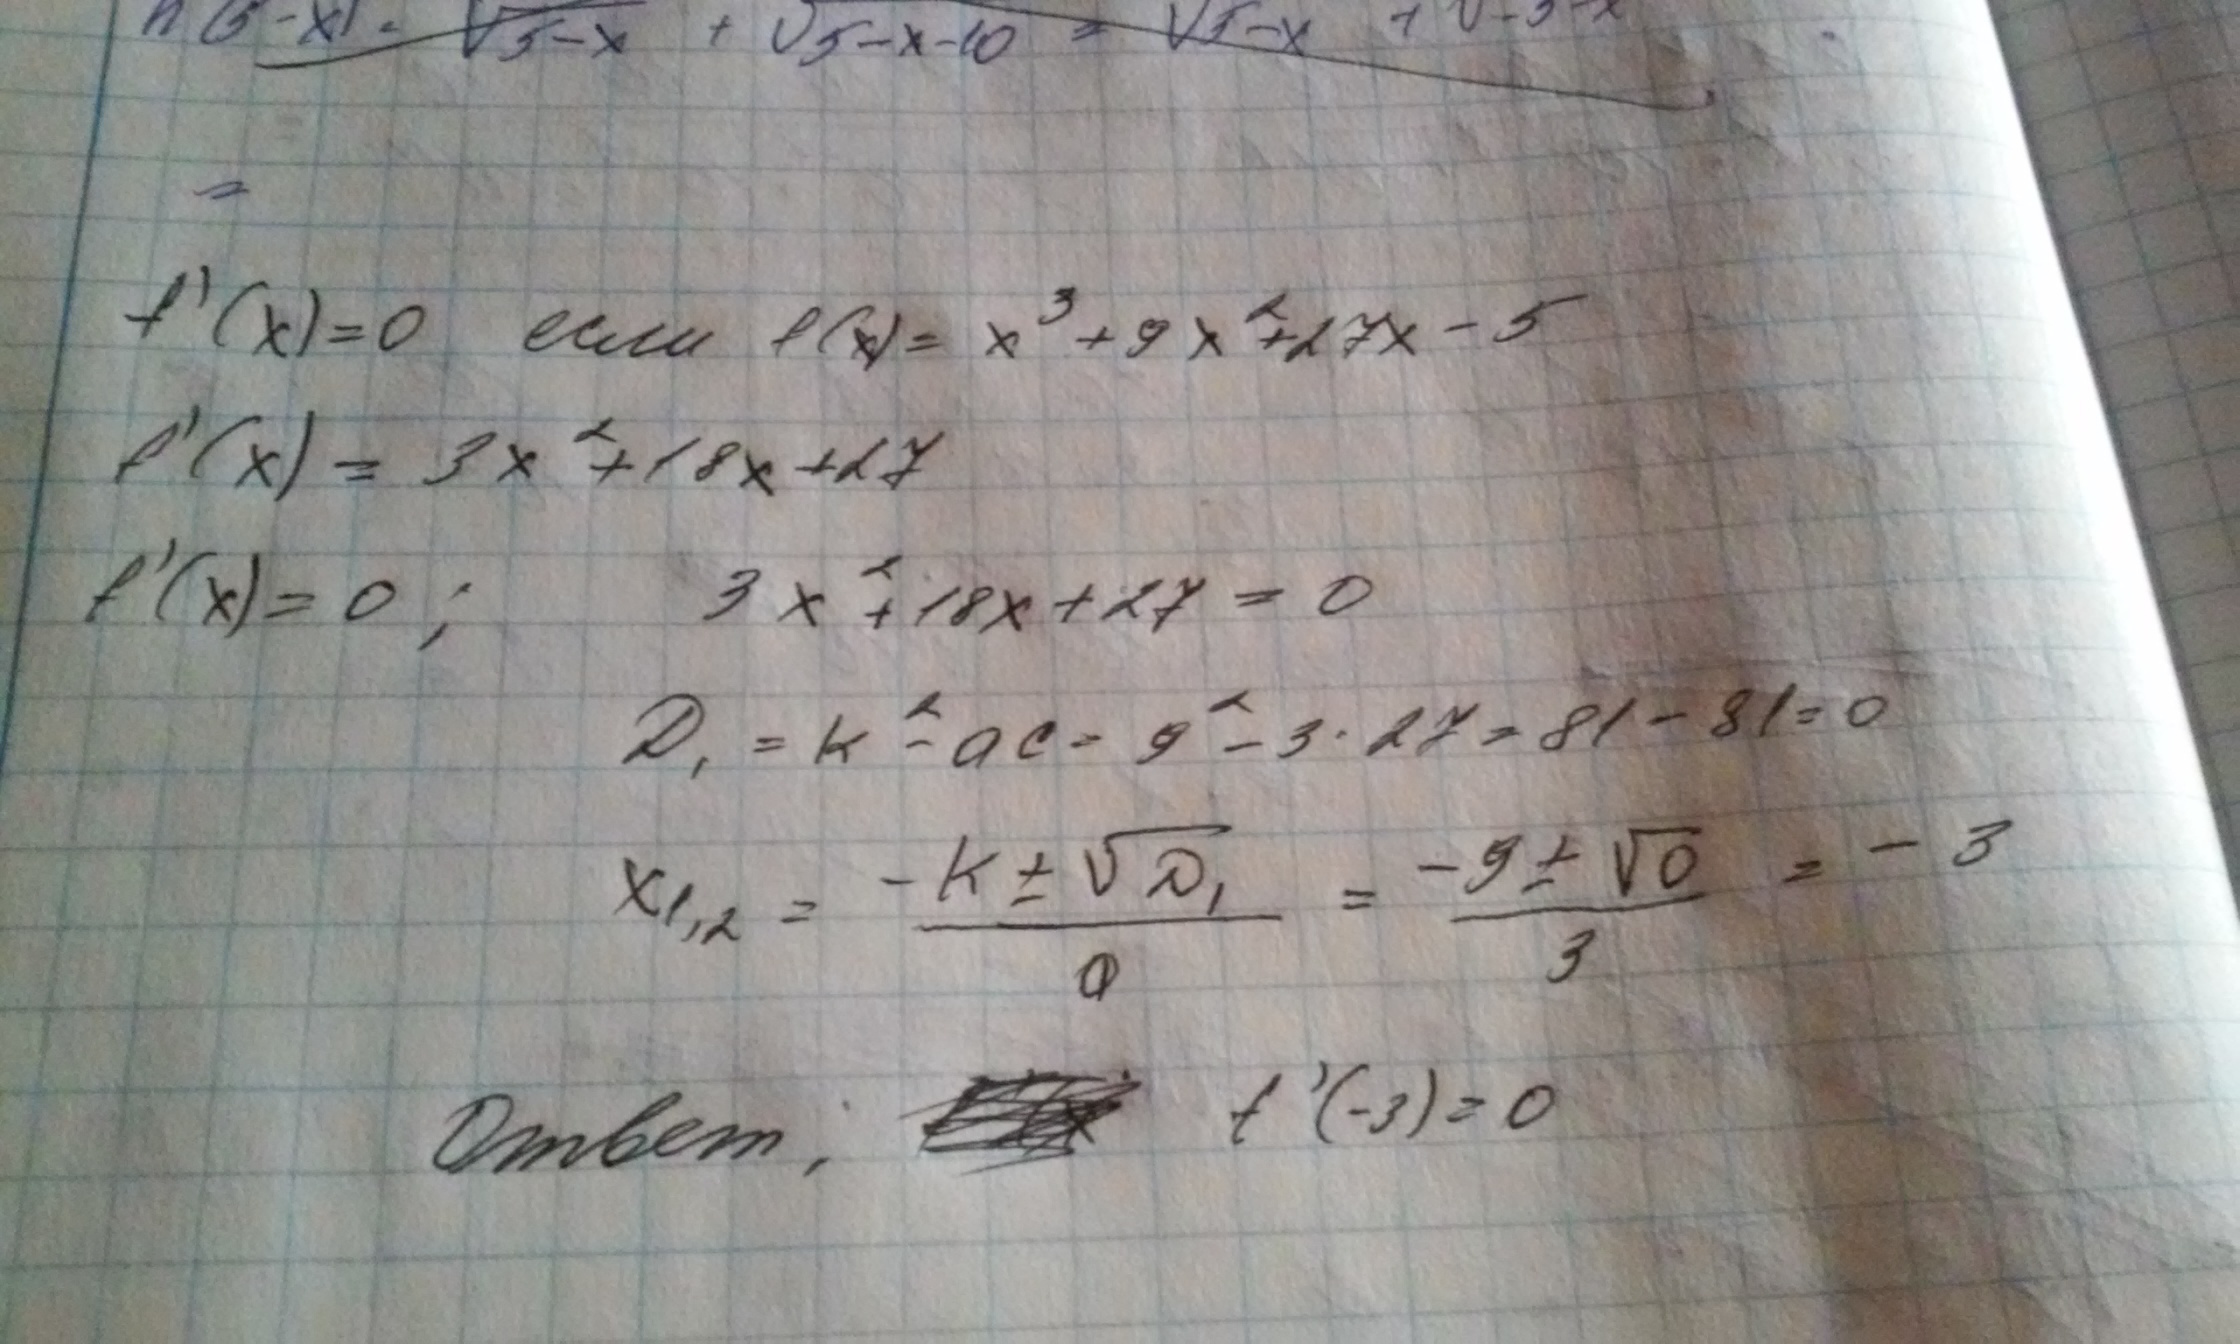 h(5-x) = √5-x + √5-x-10 = √5-x + √-5-x
=
f'(x)=0 если f(x)= x³+9x²+27x-5
f'(x) = 3x²+18x+27
f'(x)=0; 3x²+18x+27=0
D₁ = k²-ac = 9²-3·27=81-81=0
x₁,₂ = (-k±√D₁)/a = (-9±√0)/3 = -3
Ответ; f'(-3)=0